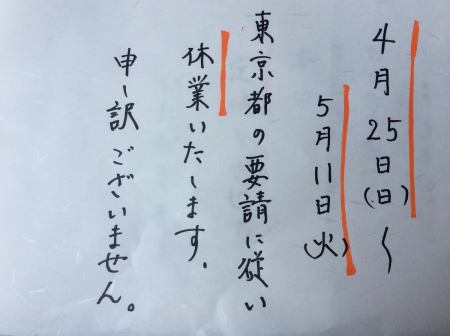 4月25日(日)〜
5月11日(火)
東京都の要請に従い
休業いたします。
申し訳ございません。